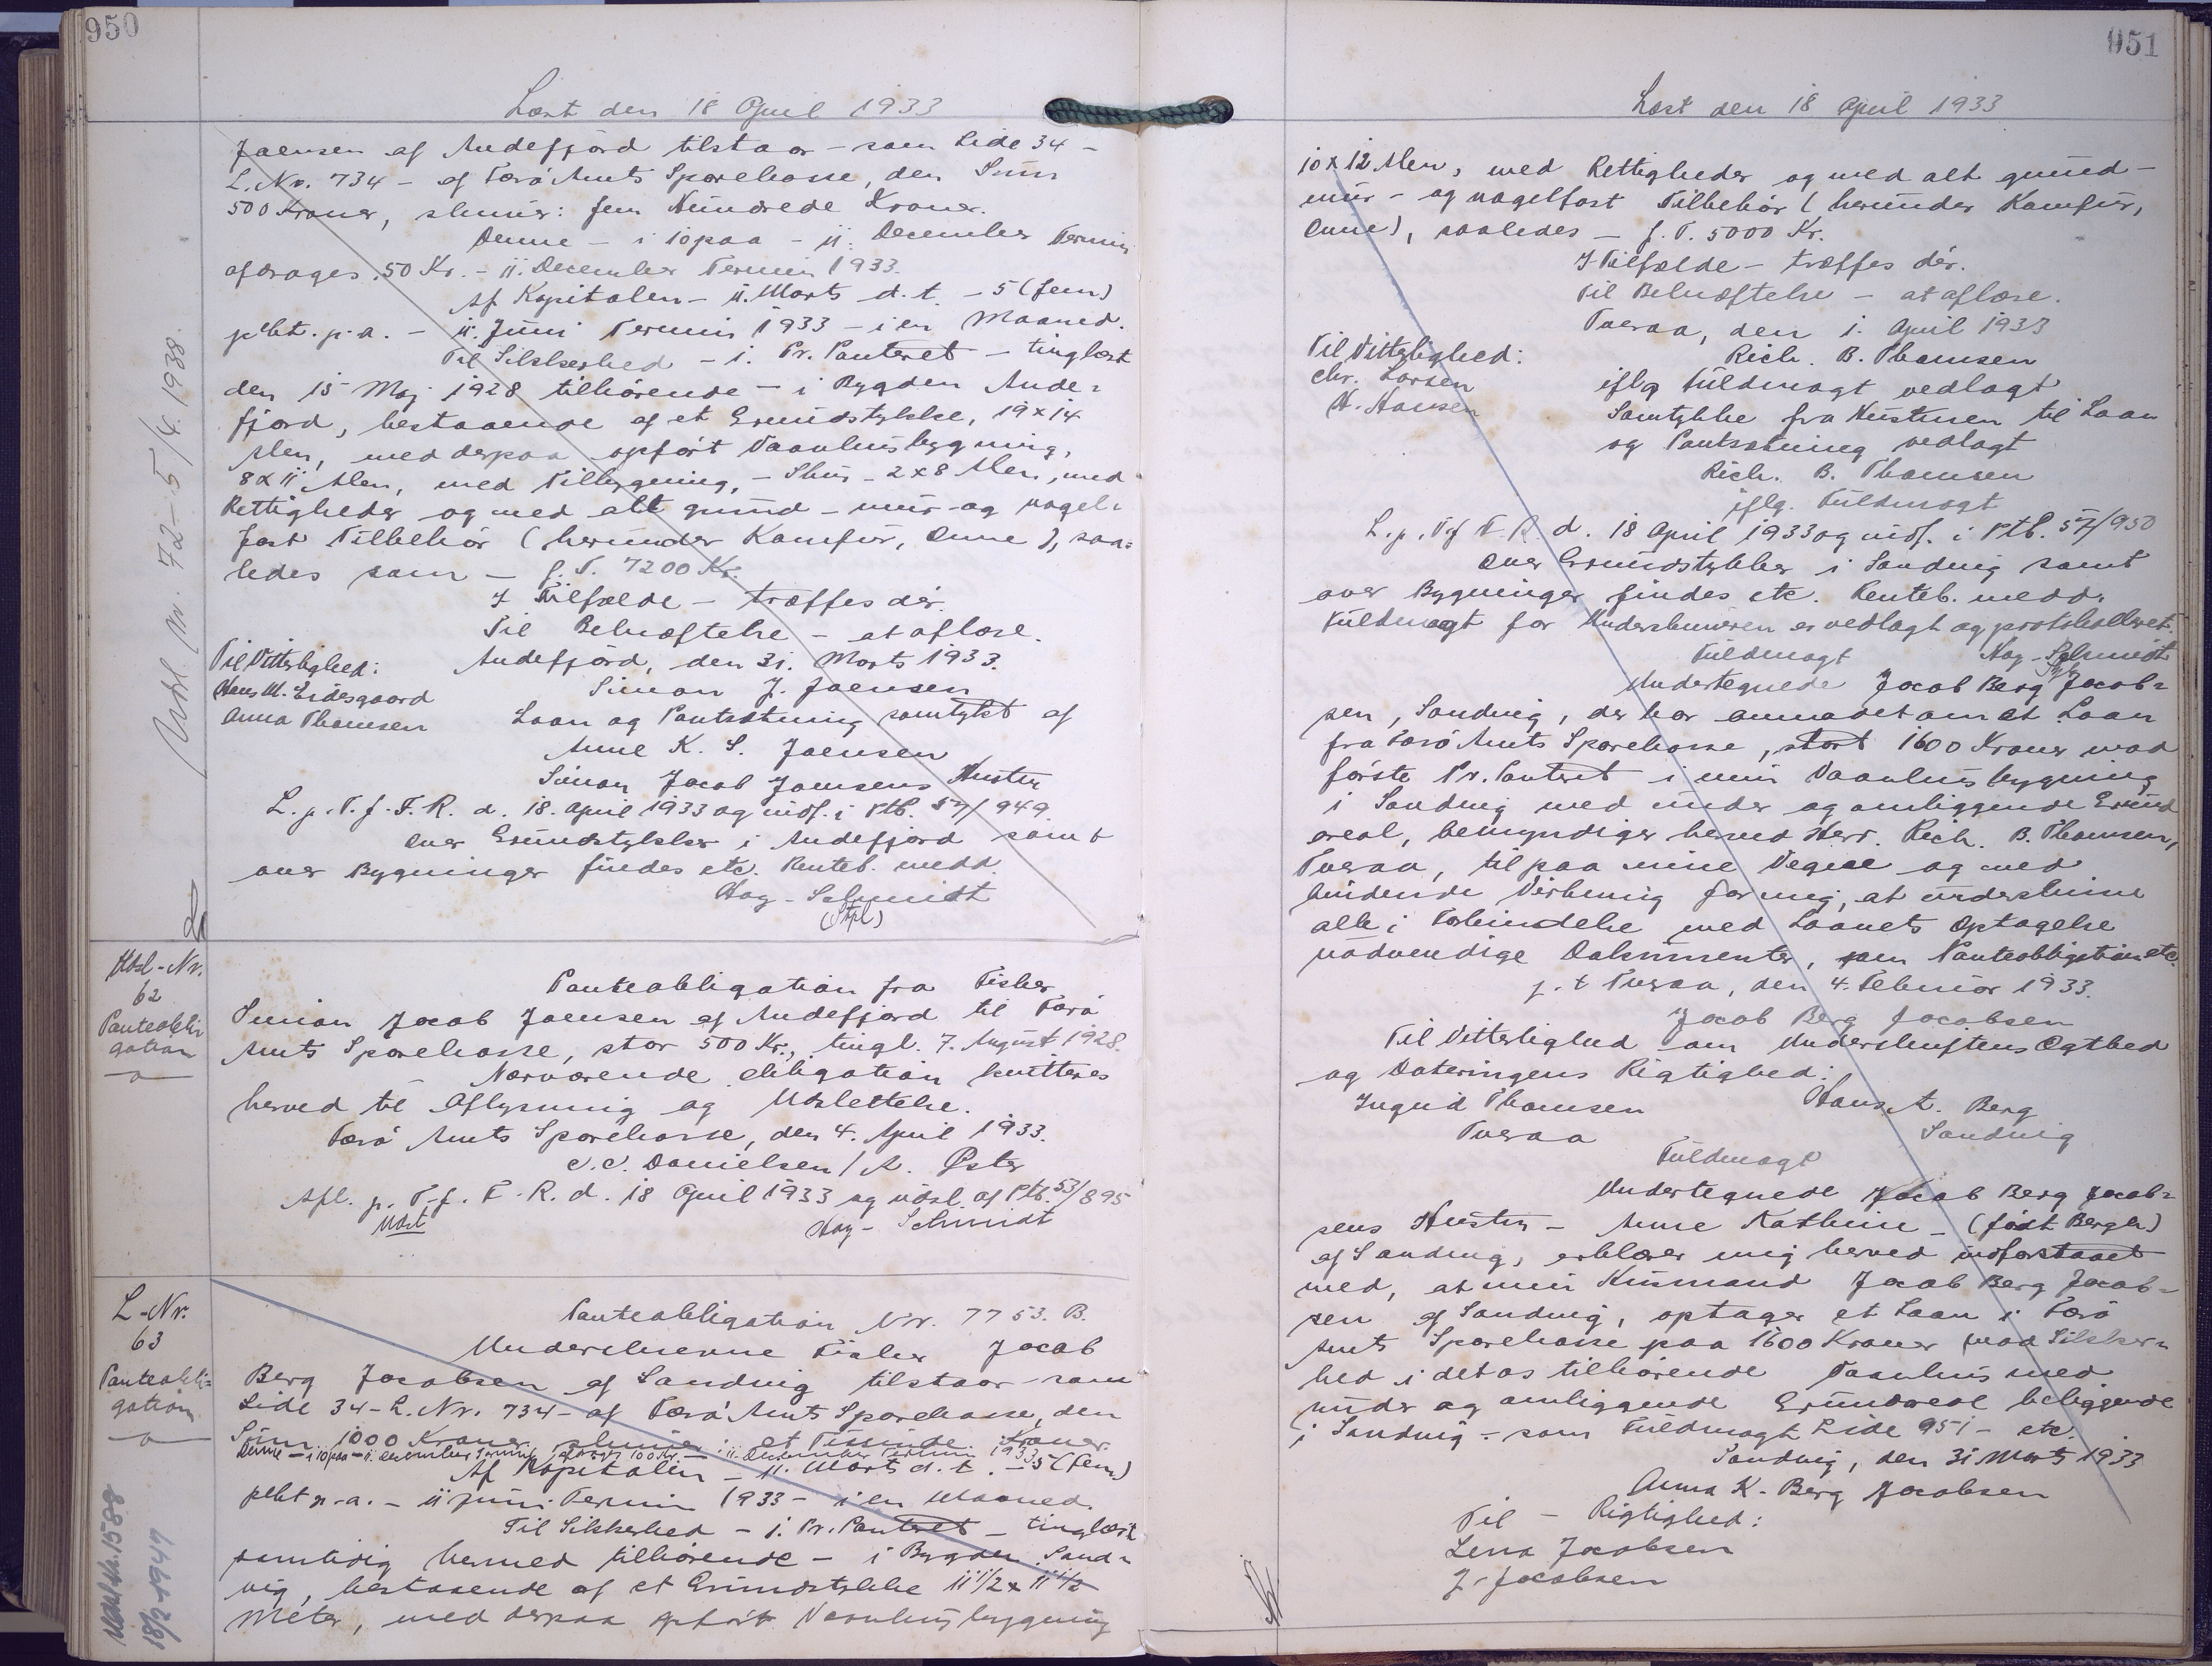 950
Læst den 18 April 1933
Joensen af Andefjord tilstaar - som Side 34 -
L. Nr. 734 - af Færø Amts Sparekasse, den Sum
500 Kroner, skriver: fem Hundrede Kroner.
Denne - i 10 paa - 11. December Termin
afdrages 50 Kr. - 11. December Termin 1933.
Af Kapitalen - 11. Marts d. t. - 5 (fem)
pCt. p. a. - 11. Juni Termin 1933 - i en Maaned.
Til Sikkerhed - 1. Pr. Panteret - tinglæst
den 15 Maj 1928 tilhørende - i Bygden Ande=
fjord, bestaaende af et Grundstykke, 19 x 14
Alen, med derpaa opført Vaaningsbygning,
8 x 11 Alen, med Tilbygning, - Skur - 2 x 8 Alen, med
Rettigheder og med alt grund - mur - og nagel-
fast Tilbehør (herunder Komfur, Ovne), saa=
ledes som - f. T. 7200 Kr.
I Tilfælde - træffes dér.
Til Bekræftelse - at aflæse.
Til Vitterlighed: Andefjord, den 31. Marts 1933.
Hans M. Eidesgaard Simon J. Joensen
Anna Thomsen Laan og Pantsætning samtykt af
Anne K. S. Joensen
Simon Jacob Joensens Hustru
L. p. T. f. F. R. d. 18. April 1933 og indf. i Ptb. 57/949.
Over Grundstykker i Andefjord samt
over Bygninger findes etc. Renteb. medd.
Hay-Schmidt
(Stpl)
Udsl. Nr. 72 - 5/4. 1938.
Udsl-Nr.
62
Panteobli
gation
Panteobligation fra Fisker
Simon Jacob Joensen af Andefjord til Færø
Amts Sparekasse, stor 500 Kr., tingl. 7. August 1928.
Nærværende Obligation kvitteres
herved til Aflysning og Udslettelse.
Færø Amts Sparekasse, den 4. April 1933.
C. C. Danielsen / A. Øster
Afl. p. T. f. F. R. d. 18 April 1933 og udsl. af Ptb. 53/895
Udst Hay-Schmidt
L-Nr.
63
Panteobli=
gation
Panteobligation Nr. 7753. B.
Underskrevne Fisker Jacob
Berg Jacobsen af Sandvig tilstaar - som
Side 34 - L. Nr. 734 - af Færø Amts Sparekasse, den
Sum 1000 Kroner, skriver: et Tusinde Kroner.
Denne - i 10 paa - 11. December Termin afdrages 100 Kr. - 11. December Termin 1933.
Af Kapitalen - 11. Marts d. t. - 5 (fem)
pCt p. a. - 11 Juni Termin 1933 - i en Maaned.
Til Sikkerhed - 1. Pr. Panteret - tinglæst
samtidig hermed tilhørende - i Bygden Sand=
vig, bestaaende af et Grundstykke 11 1/2 x 11 1/2
Meter, med derpaa opført Vaaningsbygning
18/2-1947
951
Læst den 18 April 1933
10 x 12 Alen, med Rettigheder og med alt grund -
mur - og nagelfast Tilbehør (herunder Komfur,
Ovne), saaledes - f. T. 5000 Kr.
I Tilfælde - træffes dér.
Til Bekræftelse - at aflæse.
Tveraa, den 1. April 1933
Til Vitterlighed: Rich. B. Thomsen
Chr. Larsen iflg Fuldmagt vedlagt
H. Hansen Samtykke fra Hustruen til Laan
og Pantsætning vedlagt
Rich. B. Thomsen
iflg. Fuldmagt
L. p. T. f. F. R. d. 18 April 1933 og indf. i Ptb. 57/950
Over Grundstykker i Sandvig samt
over Bygninger findes etc. Renteb. medd.
Fuldmagt for Underskriveren er vedlagt og protokolleret.
Fuldmagt Hay-Schmidt
Undertegnede Jacob Berg Jacob=
sen, Sandvig, der har anmodet om et Laan
fra Færø Amts Sparekasse, stort 1600 Kroner mod
første Pr. Panteret i min Vaaningsbygning
i Sandvig med under og omliggende Grund
areal, bemyndiger herved Herr. Rich. B. Thomsen,
Tveraa, til paa mine Vegne og med
bindende Virkning for mig, at underskrive
alle i Forbindelse med Laanets Optagelse
nødvendige Dokumenter, som Panteobligation etc.
p. t Tveraa, den 4. Februar 1933.
Jacob Berg Jacobsen
Til Vitterlighed om Underskriftens Ægthed
og Dateringens Rigtighed:
Ingrid Thomsen Hans A. Berg
Tveraa Sandvig
Fuldmagt
Undertegnede Jacob Berg Jacob=
sens Hustru - Anne Kathrine - (født Berg)
af Sandvig, erklærer mig herved indforstaaet
med, at min Husmand Jacob Berg Jacob=
sen af Sandvig, optager et Laan i Færø
Amts Sparekasse paa 1600 Kroner mod Sikker=
hed i det os tilhørende Vaanhus med
under og omliggende Grundareal beliggende
i Sandvig - som Fuldmagt Side 951 - etc.
Sandvig, den 31 Marts 1933
Anna K. Berg Jacobsen
Til - Rigtighed:
Lena Jacobsen
J. Jacobsen